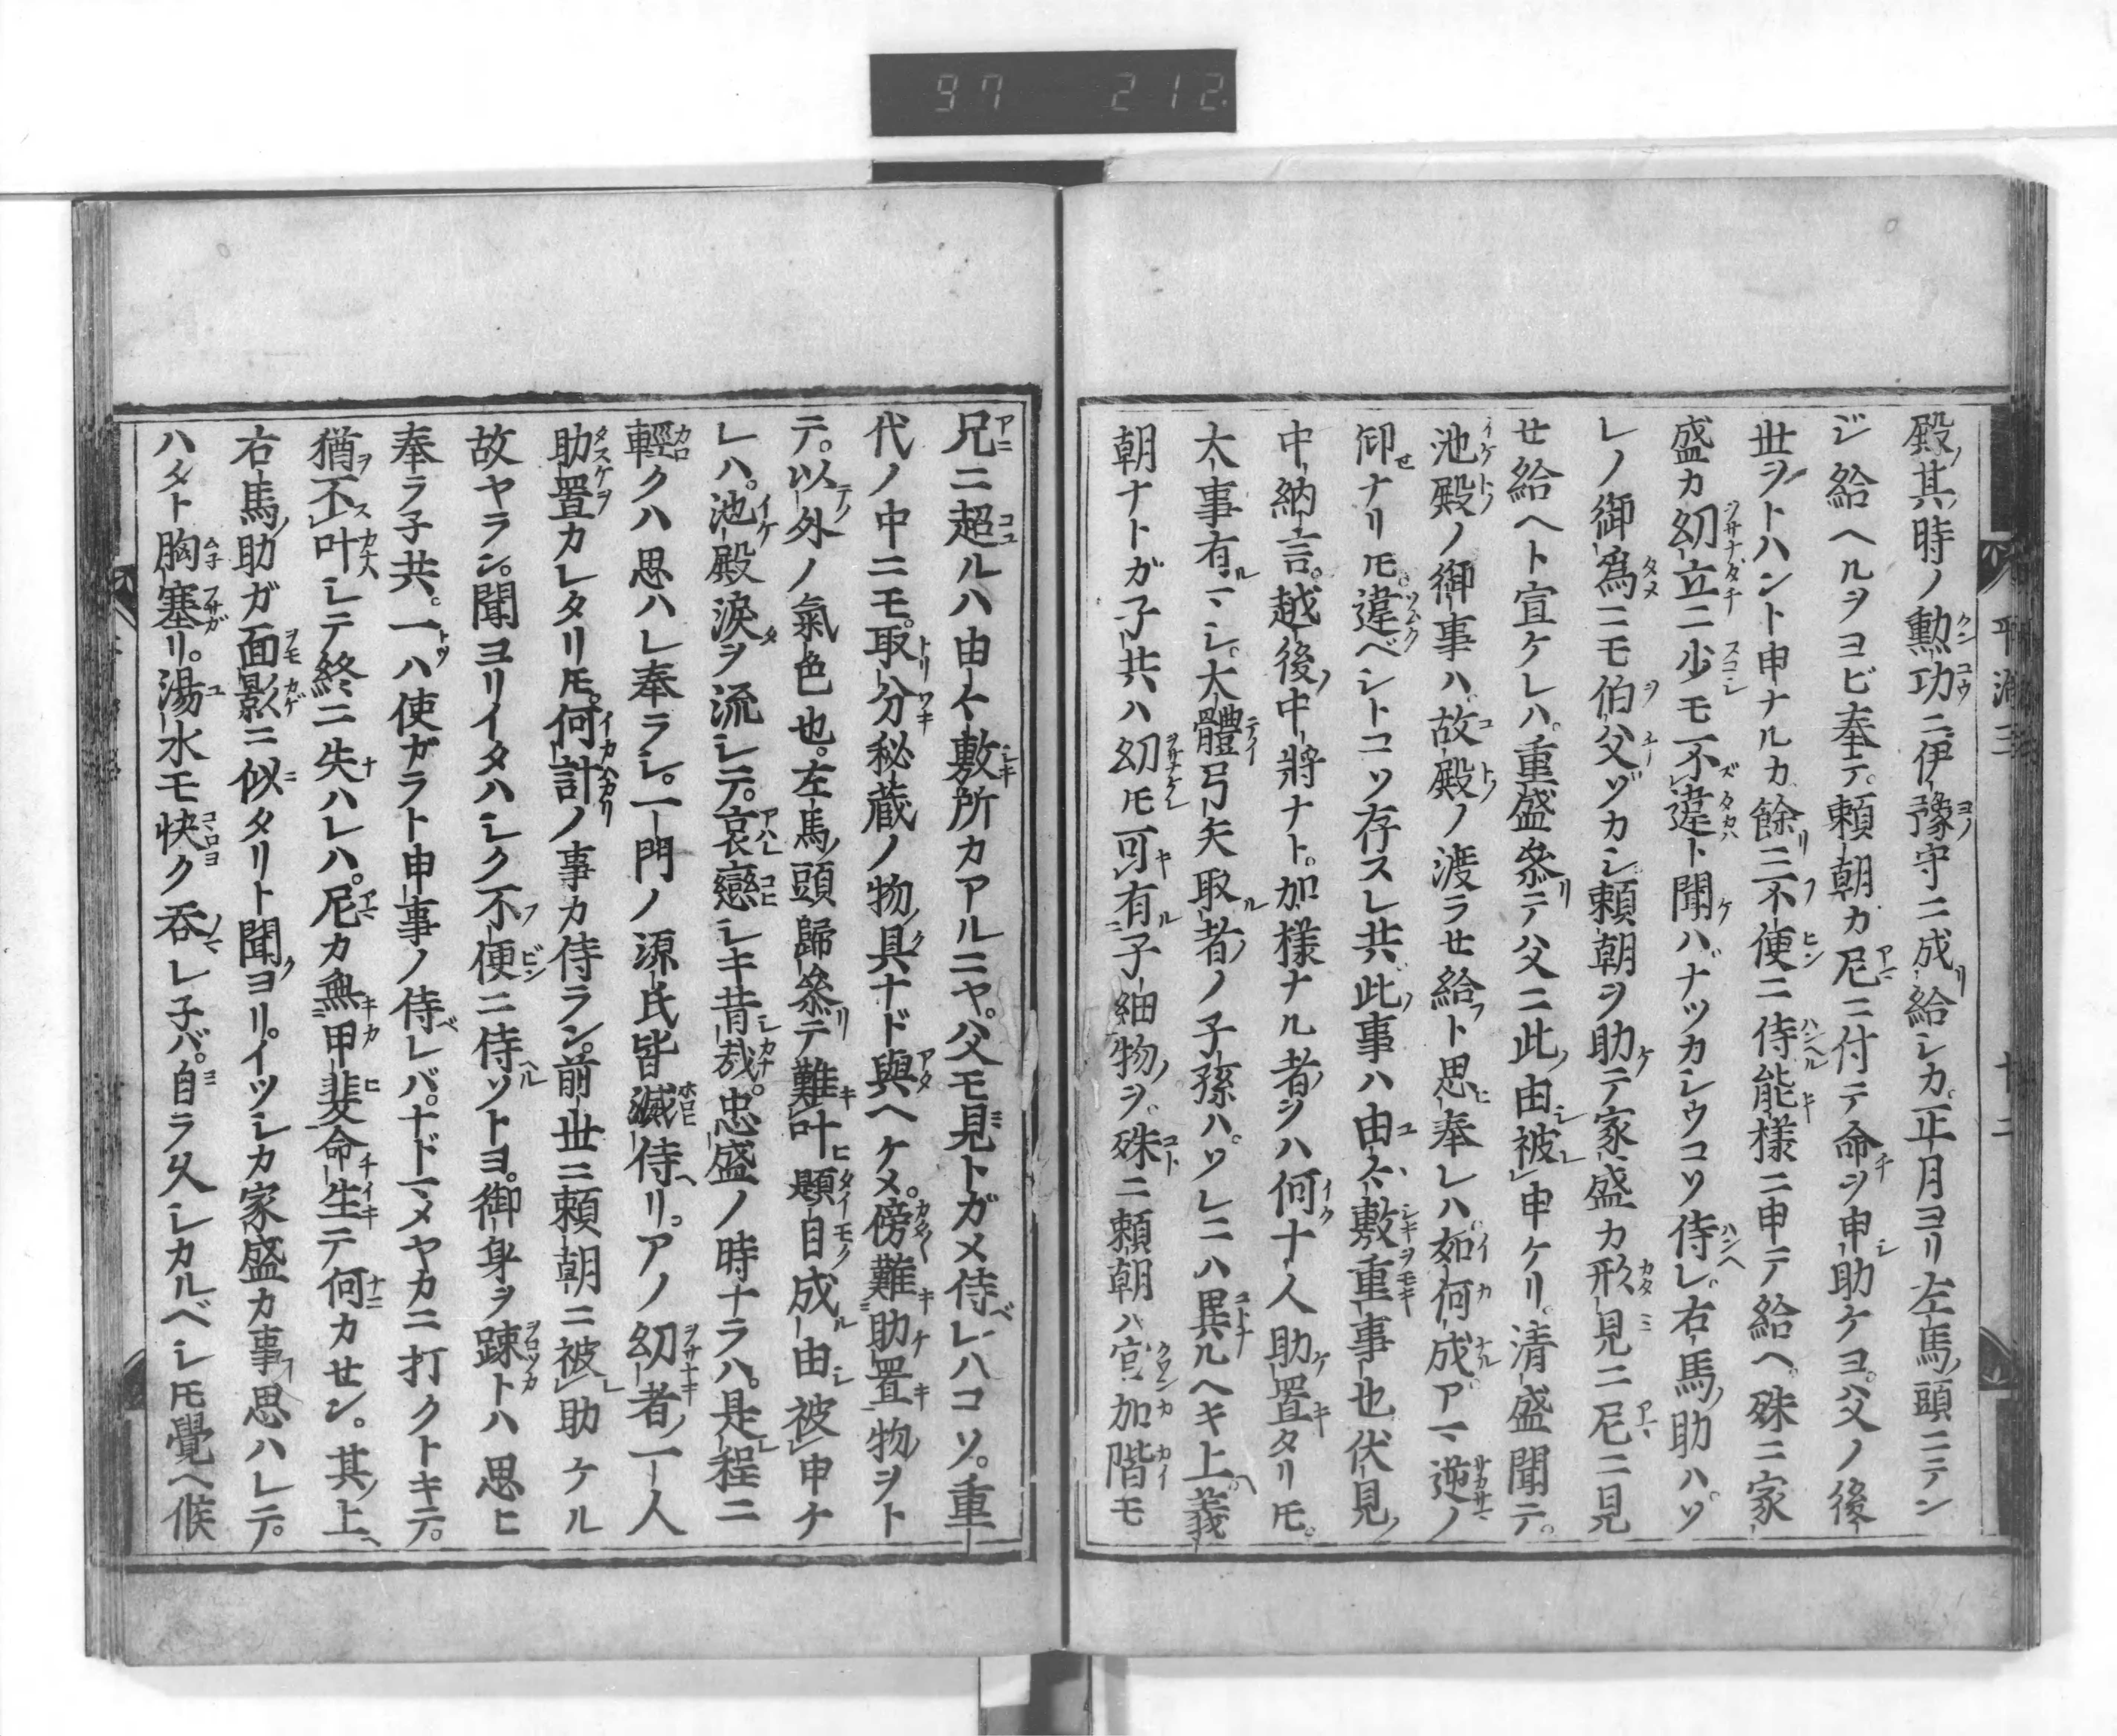 97 212
殿其時ノ勲功ニ伊豫守ニ成給シカ。正月ヨリ左馬頭ニテシ
ジ給ヘルヲヨビ奉テ。頼朝カ尼ニ付テ命ヲ申助ケヨ。父ノ後
世ヲトハント申ナルカ餘ニ不便ニ侍能様ニ申テ給ヘ。殊ニ家
盛カ幼立ニ少モ不違ト聞ハナツカシウコソ侍レ。右馬助ハソ
レノ御為ニモ伯父ヅカシ頼朝ヲ助テ家盛カ形見ニ尼ニ見
せ給ヘト宣ケレハ。重盛参テ父ニ此由被申ケリ。清盛聞テ。
池殿ノ御事ハ故殿ノ渡ラせ給ト思奉レハ如何成アマ逆ノ
仰ナリ𪜈。違ベシトコソ存スレ共此事ハ由々敷重事也伏見
中納言。越後中將ナト。加様ナル者ヲハ何十人助置タリ𪜈。
大事有マシ。大體弓矢取者ノ子孫ハ。ソレニハ異ルヘキ上義
朝ナトガ子共ハ幼𪜈可有子細物ヲ。殊ニ頼朝ハ官加階モ
兄ニ超ルハ由々敷所カアルニヤ。父モ見トガメ侍レハコソ。重
代ノ中ニモ。取分秘蔵ノ物具ナド與ヘケメ。傍難助置物ヲト
テ。以外ノ氣色也。左馬頭歸参テ難叶題目成由被申ケ
レハ。池殿淚ヲ流シテ。哀戀シキ昔哉。忠盛ノ時ナラハ。是程ニ
輕クハ思ハレ奉ラシ。一門ノ源氏皆滅侍リ。アノ幼者一人
助置カレタリ𪜈。何計ノ事カ侍ラン。前世ニ頼朝ニ被助ケル
故ヤラン。聞ヨリイタハシク不便ニ侍ソトヨ。御身ヲ踈トハ思ヒ
奉ラ子共。一ハ使ガラト申事ノ侍レバ。ナドマメヤカニ打クトキテ。
猶不叶シテ終ニ失ハレハ。尼カ無甲斐命生テ何カせン。其上
右馬助ガ面影ニ似タリト聞ヨリ。イツシカ家盛カ事思ハレテ。
ハタト胸塞リ。湯水モ快ク呑レ子バ。自ラ久シカルベシ𪜈覺ヘ候